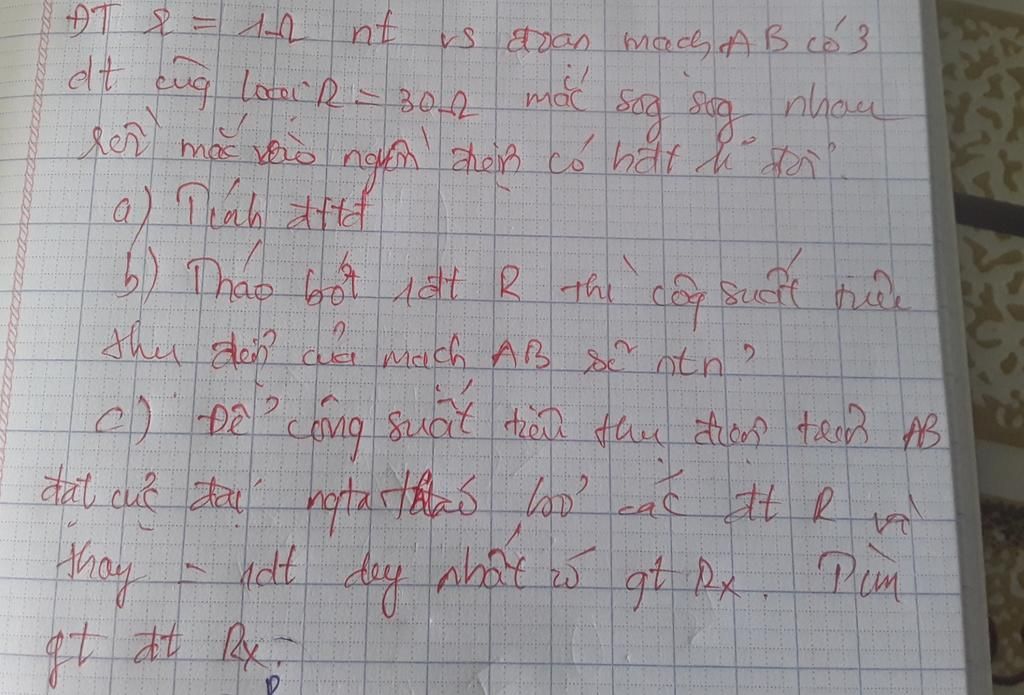 ĐT r = 1Ω nt vs đoạn mạch AB có 3
dt cùg loại R = 30Ω mắc sog sog nhau
rồi mắc vào nguồn điện có hđt k đổi.
a) Tính đttđ
b) Tháo bớt 1dt R thì côg suất tiêu
thụ điện của mạch AB sẽ ntn?
c) Để công suất tiêu thụ điện trên AB
đạt cực đại ngta tháo bỏ các đt R và
thay = 1dt duy nhất có gt Rx. Tìm
gt đt Rx.